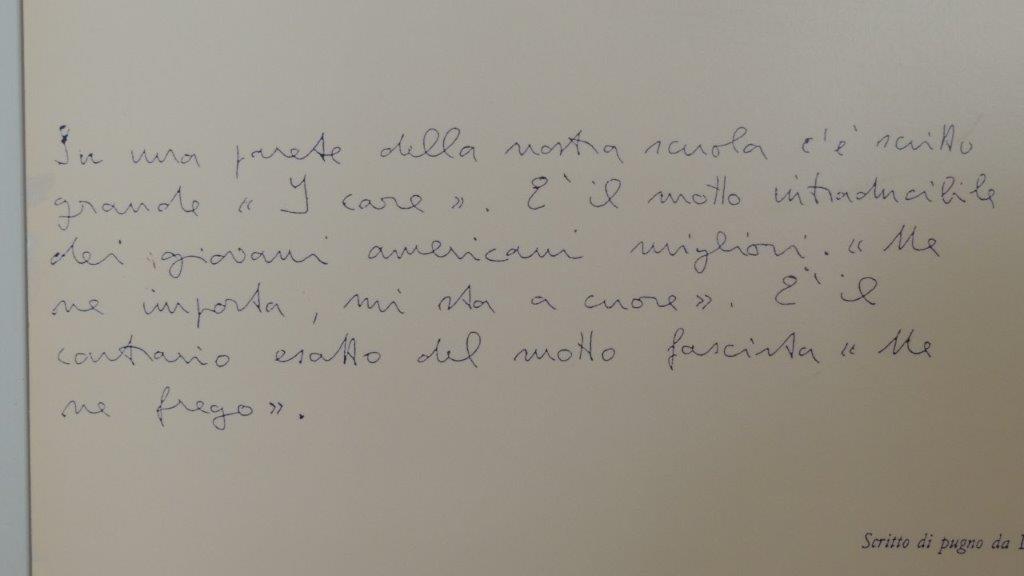 In una parete della nostra scuola c'è scritto
grande « I care ». E' il motto intraducibile
dei giovani americani migliori. « Me
ne importa, mi sta a cuore ». E' il
contrario esatto del motto fascista « Me
ne frego ».
Scritto di pugno da